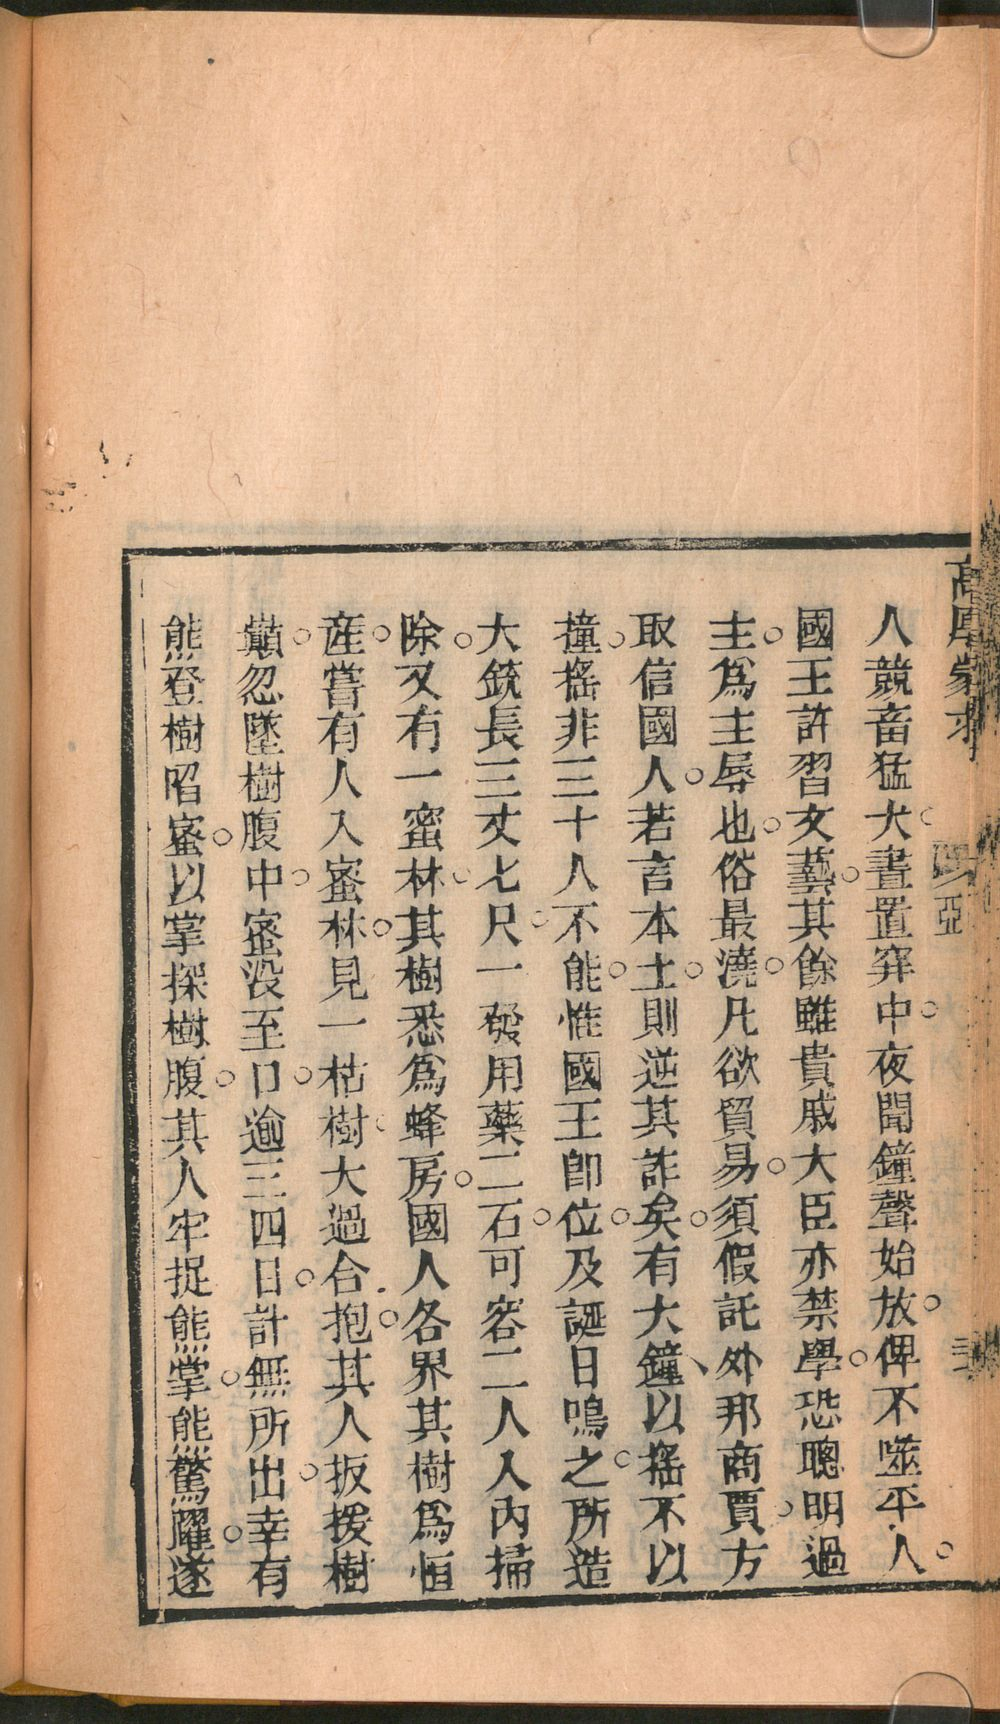 高厚蒙求
亞
人競畜猛犬。晝置穽中。夜聞鐘聲始放。俾不噬平人。
國王許習文藝。其餘雖貴戚大臣亦禁學。恐聰明過
主。爲主辱也。俗最澆。凡欲貿易。須假託外邦商賈。方
取信國人。若言本土。則逆其詐矣。有大鐘、以搖不以
撞。搖非三十人不能。惟國王卽位。及誕日鳴之。所造
大銃長三丈七尺。一發用藥二石。可容二人入內掃
除。又有一蜜林。其樹悉爲蜂房。國人各界其樹爲恒
產。嘗有人入蜜林。見一枯樹。大過合抱。其人扳援樹
巔。忽墜樹腹中。蜜沒至口。逾三四日。計無所出。幸有
熊登樹㗖蜜。以掌探樹腹。其人牢捉熊掌。熊驚躍。遂